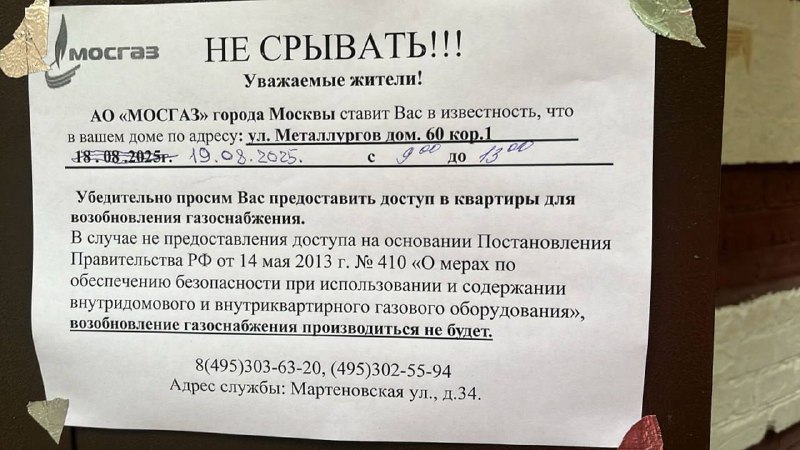 МОСГАЗ
НЕ СРЫВАТЬ!!!
Уважаемые жители!
АО «МОСГАЗ» города Москвы ставит Вас в известность, что
в вашем доме по адресу: ул. Металлургов дом. 60 кор.1
18.08.2025г. 19.08.2025. с 9 00 до 13 00
Убедительно просим Вас предоставить доступ в квартиры для
возобновления газоснабжения.
В случае не предоставления доступа на основании Постановления
Правительства РФ от 14 мая 2013 г. № 410 «О мерах по
обеспечению безопасности при использовании и содержании
внутридомового и внутриквартирного газового оборудования»,
возобновление газоснабжения производиться не будет.
8(495)303-63-20, (495)302-55-94
Адрес службы: Мартеновская ул., д.34.